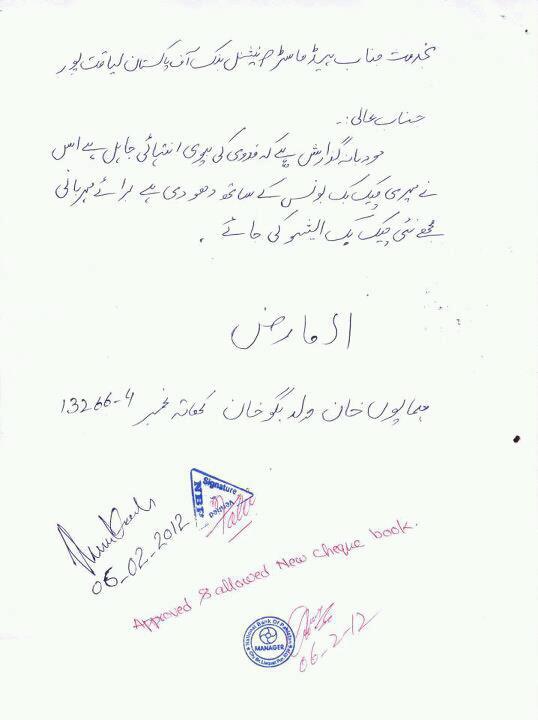 بخدمت جناب ہیڈ ماسٹر نیشنل بنک آف پاکستان لیاقت پور
جناب عالی:۔
مودبانہ گذارش ہے کہ فدوی کی بیوی انتہائی جاہل ہے اس
نے میری چیک بک بونس کے ساتھ دھو دی ہے برائے مہربانی
مجھے نئی چیک بک ایشو کی جائے۔
العارض
ہمایوں خان ولد بگو خان کھاتہ نمبر 13266-4
Signature
Verified
NBP
06-02-2012
Approved & allowed New cheque book.
National Bank Of Pakistan
MANAGER
06-2-12